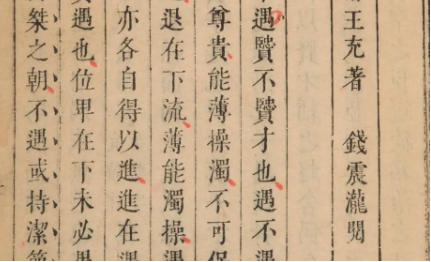 王充著　錢震瀧閱
遇贒不贒才也遇不遇
尊貴能薄操濁不可保
退在下流薄能濁操遇
亦各自得以進進在遇
遇也位卑在下未必愚
桀之朝不遇或持潔